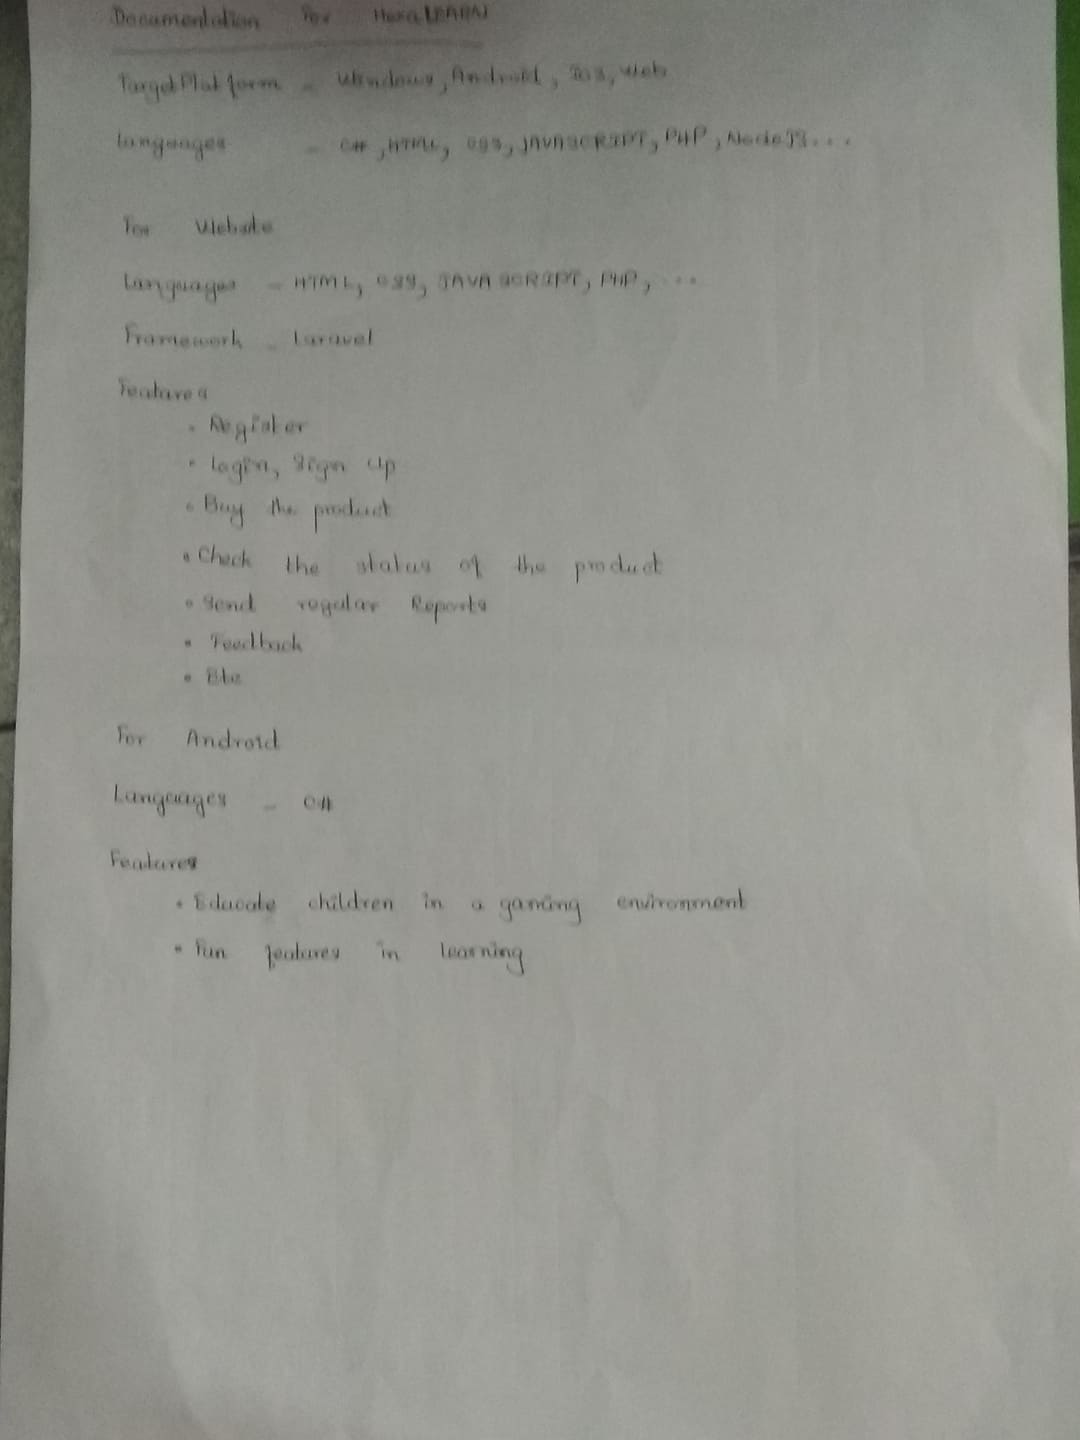 Documentation for HexaLEARN
Target Platform - Windows, Android, IOS, Web
Languages - C#, HTML, CSS, JAVASCRIPT, PHP, NodeJS...
For Website
Languages - HTML, CSS, JAVA SCRIPT, PHP, ...
Framework - Laravel
Features
• Register
• Login, Sign Up
• Buy the product
• Check the status of the product
• Send regular Reports
• Feedback
• Etc
For Android
Languages - C#
Features
• Educate children in a gaming environment
• Fun features in learning